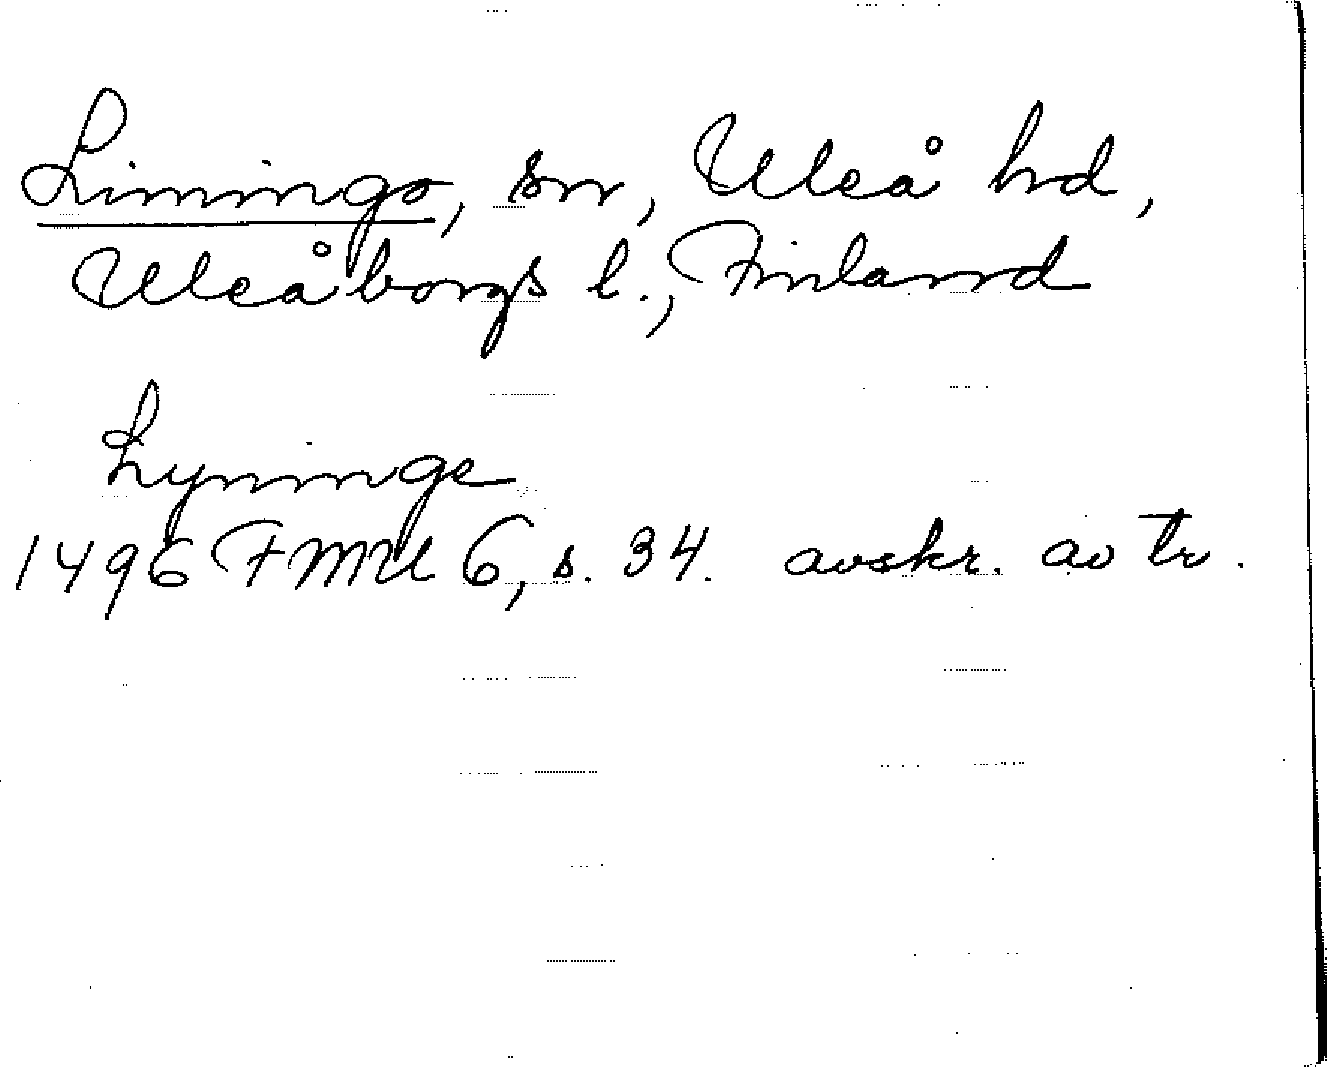 Limingo, sn, Uleå hd,
Uleåborgs l., Finland
Lyninge
1496 FMU 6, s. 34. avskr. av tr.